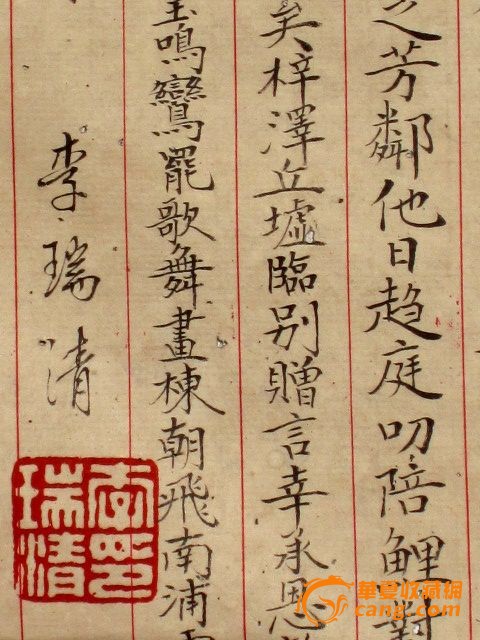 之芳鄰他日趍庭叨陪鯉對
矣梓澤丘墟臨别贈言幸承恩
玉鳴鸞罷歌舞畫棟朝飛南浦
李瑞清
李印瑞清
華夏收藏網
cang.com